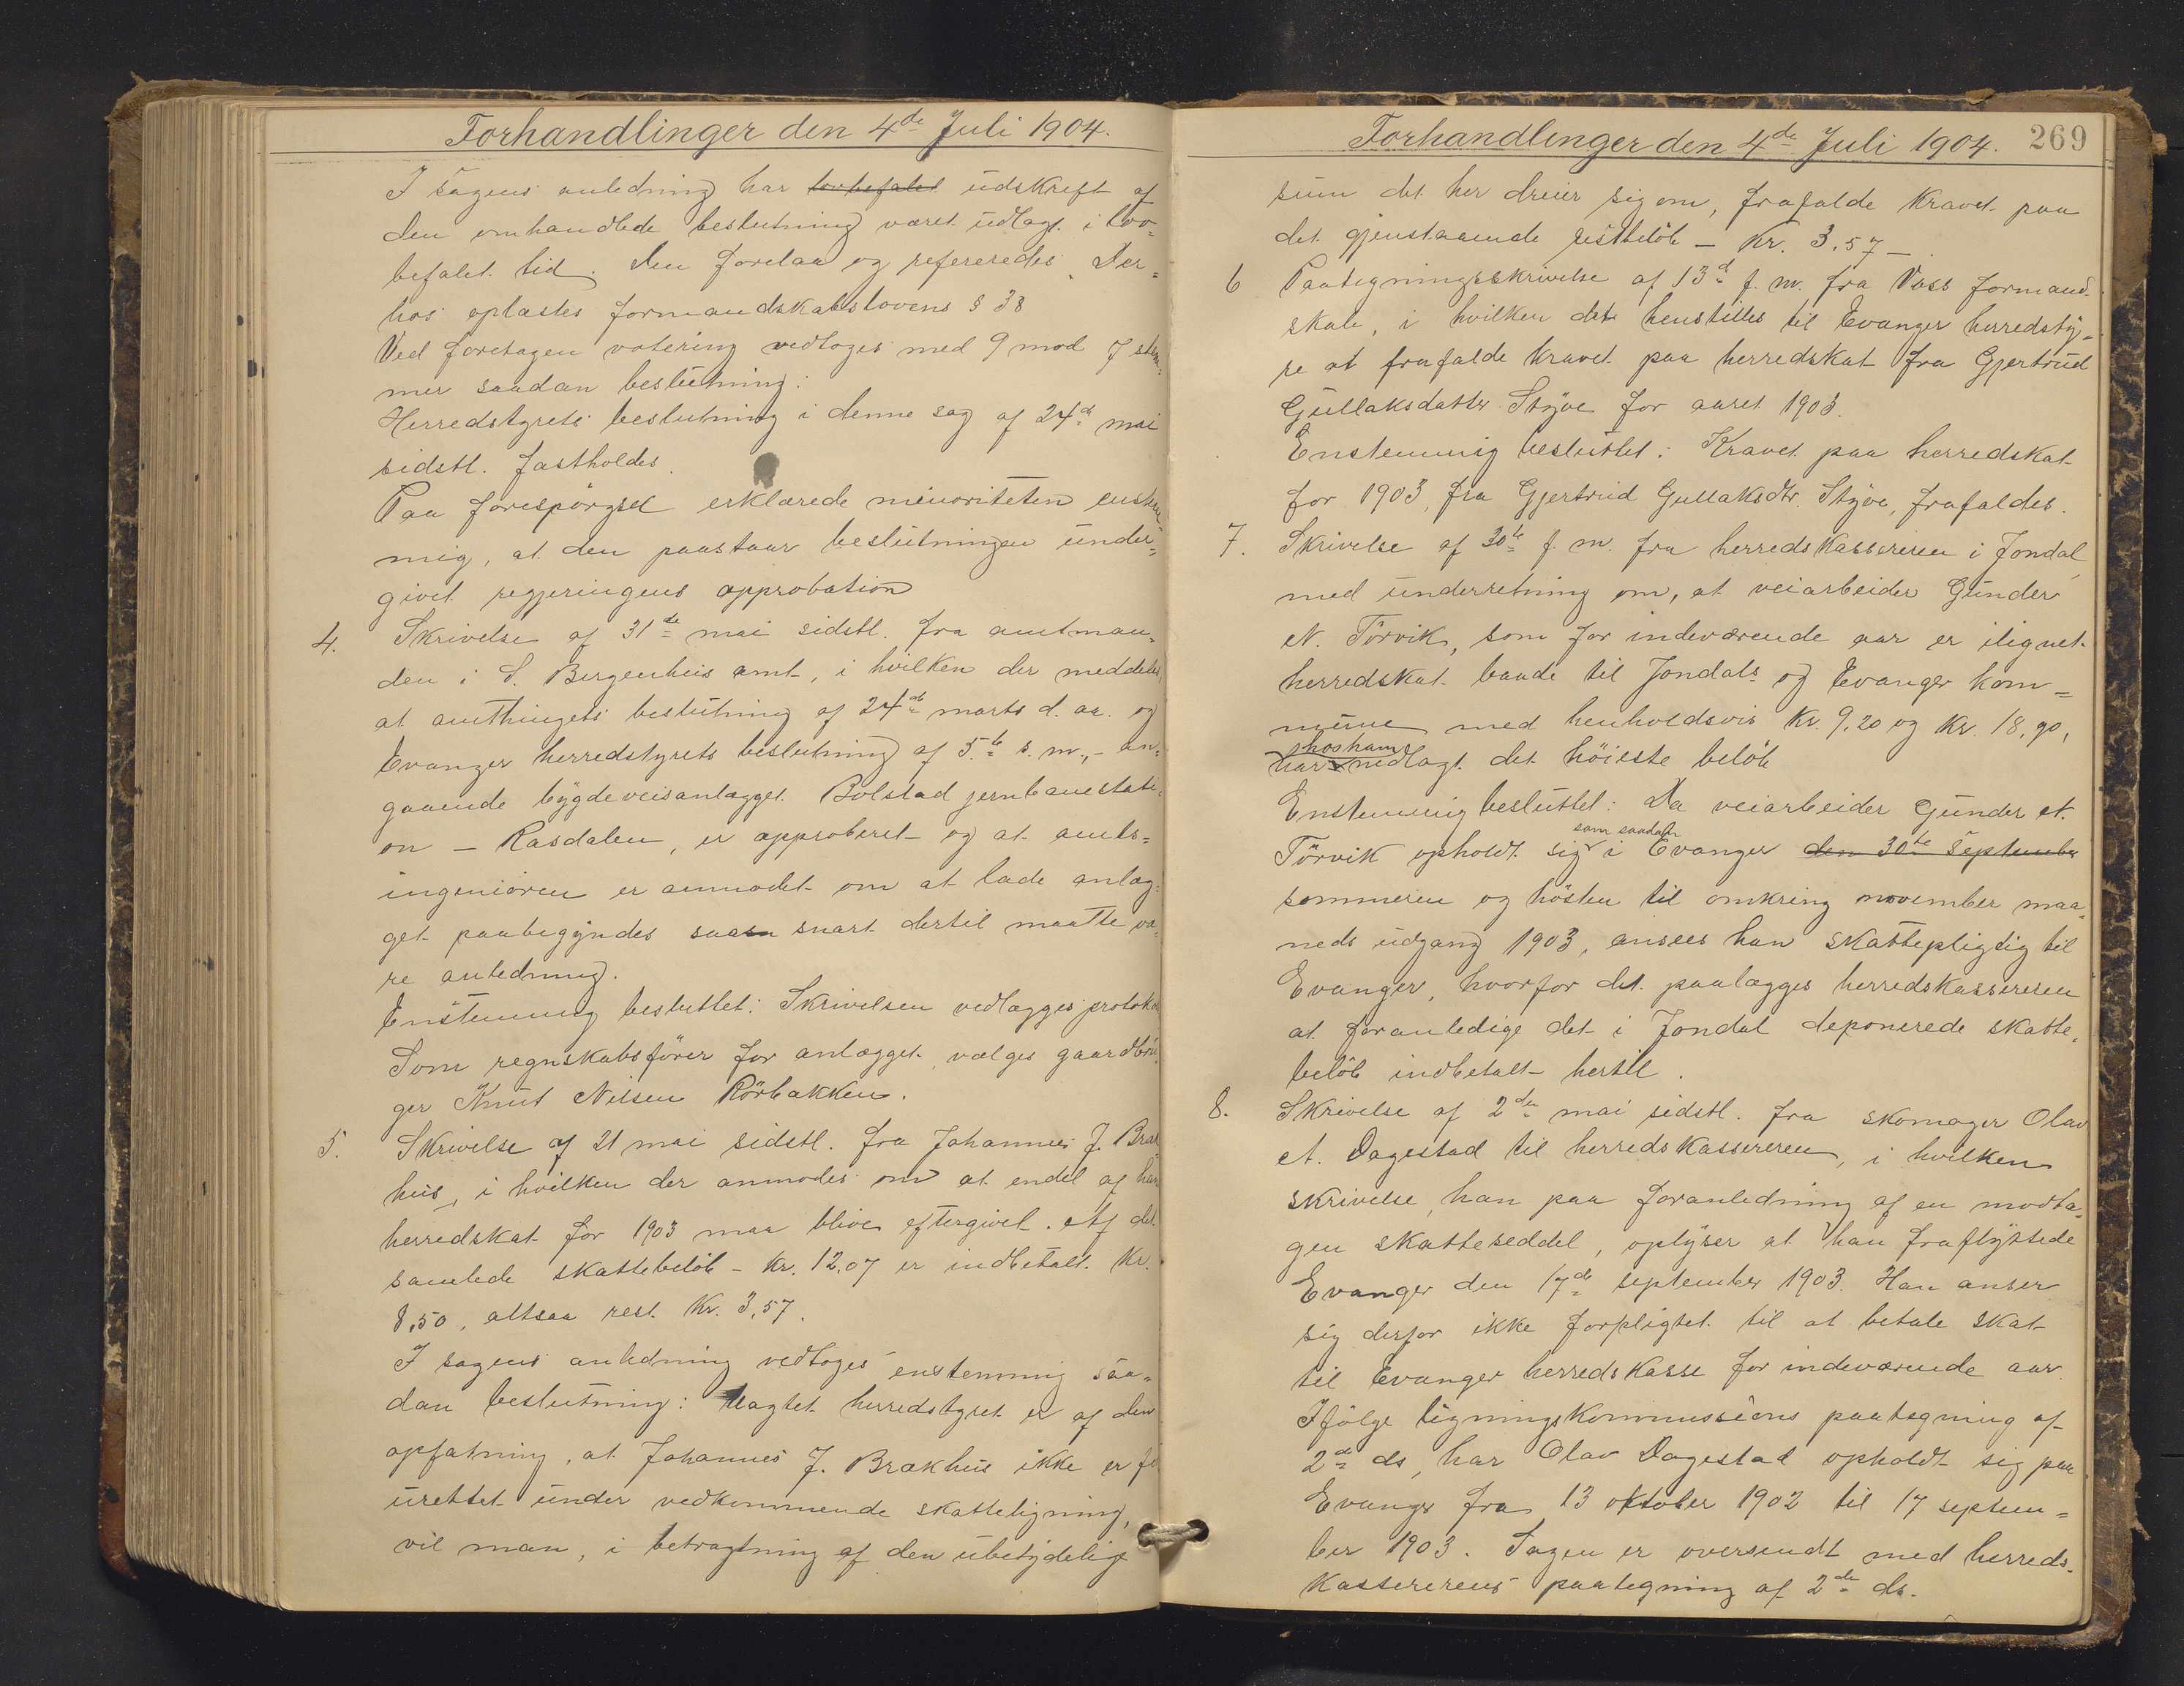 Forhandlinger den 4de Juli 1904.
I sagens anledning har lovbefalet udskrift af
den omhandlede beslutning været udlagt i lov-
befalet tid. Den forelaa og refereredes. Der-
hos oplæstes formandskabslovens § 38
Ved foretagen votering vedtoges med 9 mod 7 stem-
mer saadan beslutning:
Herredstyrets beslutning i denne sag af 24de mai
sidstl. fastholdes.
Paa forespörgsel erklærede minoriteten enstem-
mig, at den paastaar beslutningen under-
givet regjeringens approbation
4. Skrivelse af 31de mai sidstl. fra amtman-
den i S. Bergenhus amt, i hvilken der meddeles,
at amthingets beslutning af 24de marts d. aa. og
Evanger herredstyrets beslutning af 5te s. m., - an-
gaaende bygdeveisanlægget Bolstad jernbanestati-
on - Rasdalen, er approberet og at amts-
ingeniören er anmodet om at lade anlæg-
get paabegyndes saasn snart dertil maatte væ-
re anledning.
Enstemmig besluttet: Skrivelsen vedlægges protokol
Som regnskabsförer for anlægget vælges gaardbru-
ger Knut Nilsen Rörbakken.
5. Skrivelse af 21 mai sidstl. fra Johannes J. Bræk
hus, i hvilken der anmodes om at endel af hans
herredskat for 1903 maa blive eftergivet. Af det
samlede skattebelöb - kr. 12,07 er indbetalt kr.
8,50, altsaa rest kr. 3,57.
I sagens anledning vedtoges enstemmig saa-
dan beslutning: Uagtet herredstyret er af den
opfatning, at Johannes J. Brækhus ikke er fo
urettet under vedkommende skatteligning,
vil man, i betragtning af den ubetydelige
Forhandlinger den 4de Juli 1904. 269
sum det her dreier sig om, frafalde kravet paa
det gjenstaaende restbelöb - kr. 3,57 -.
6 Paategningsskrivelse af 13de f. m. fra Voss formand-
skab, i hvilken det henstilles til Evanger herredsty-
re at frafalde kravet paa herredskat fra Gjertrud
Gullaksdatter Styve for aaret 1903.
Enstemmig besluttet: Kravet paa herredskat
for 1903 fra Gjertrud Gullaksdtr. Styve, frafaldes.
7. Skrivelse af 30te f. m. fra herredskassereren i Jondal,
med underretning om, at veiarbeider Gunder
N. Törvik, som for indeværende aar er ilignet
herredskat baade til Jondals og Evanger kom-
mune med henholdsvis kr. 9,20 og kr. 18,90,
hos ham
har nedlagt det höieste belöb
Enstemmig besluttet: Da veiarbeider Gunder N.
som saadan
Törvik opholdt sig i Evanger den 30te September
sommeren og hösten til omkring november maa-
neds udgang 1903, ansees han skattepligtig til
Evanger, hvorfor det paalægges herredskassereren
at foranledige det i Jondal deponerede skatte-
belöb indbetalt hertil.
8. Skrivelse af 2den mai sidstl. fra skomager Olav
A. Dagestad til herredskassereren, i hvilken
skrivelse, han paa foranledning af en modta-
gen skatteseddel, oplyser at han fraflyttede
Evanger den 17de september 1903. Han anser
sig derfor ikke forpligtet til at betale skat
til Evanger herredskasse for indeværende aar.
Ifölge ligningskommissions paategning af
2de ds, har Olav Dagestad opholdt sig paa
Evanger fra 13 oktober 1902 til 17 septem-
ber 1903. Sagen er oversendt med herreds-
kassererens paategning af 2de ds.